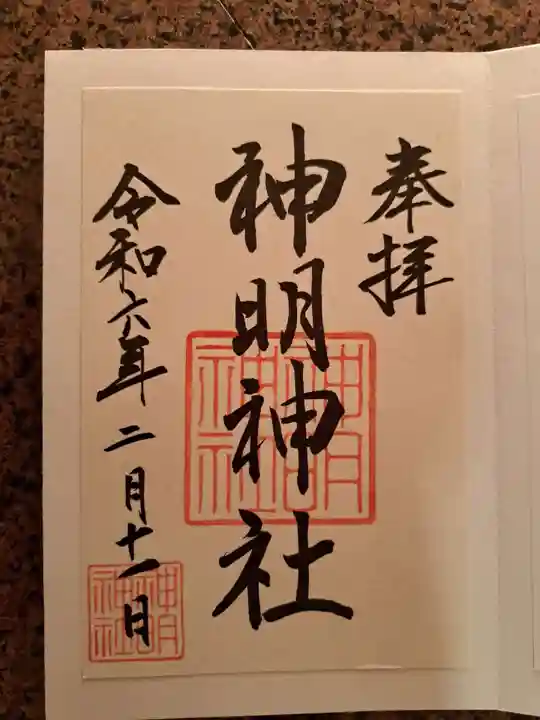 奉拝
神明神社
令和六年二月十一日
神明神社
神明神社